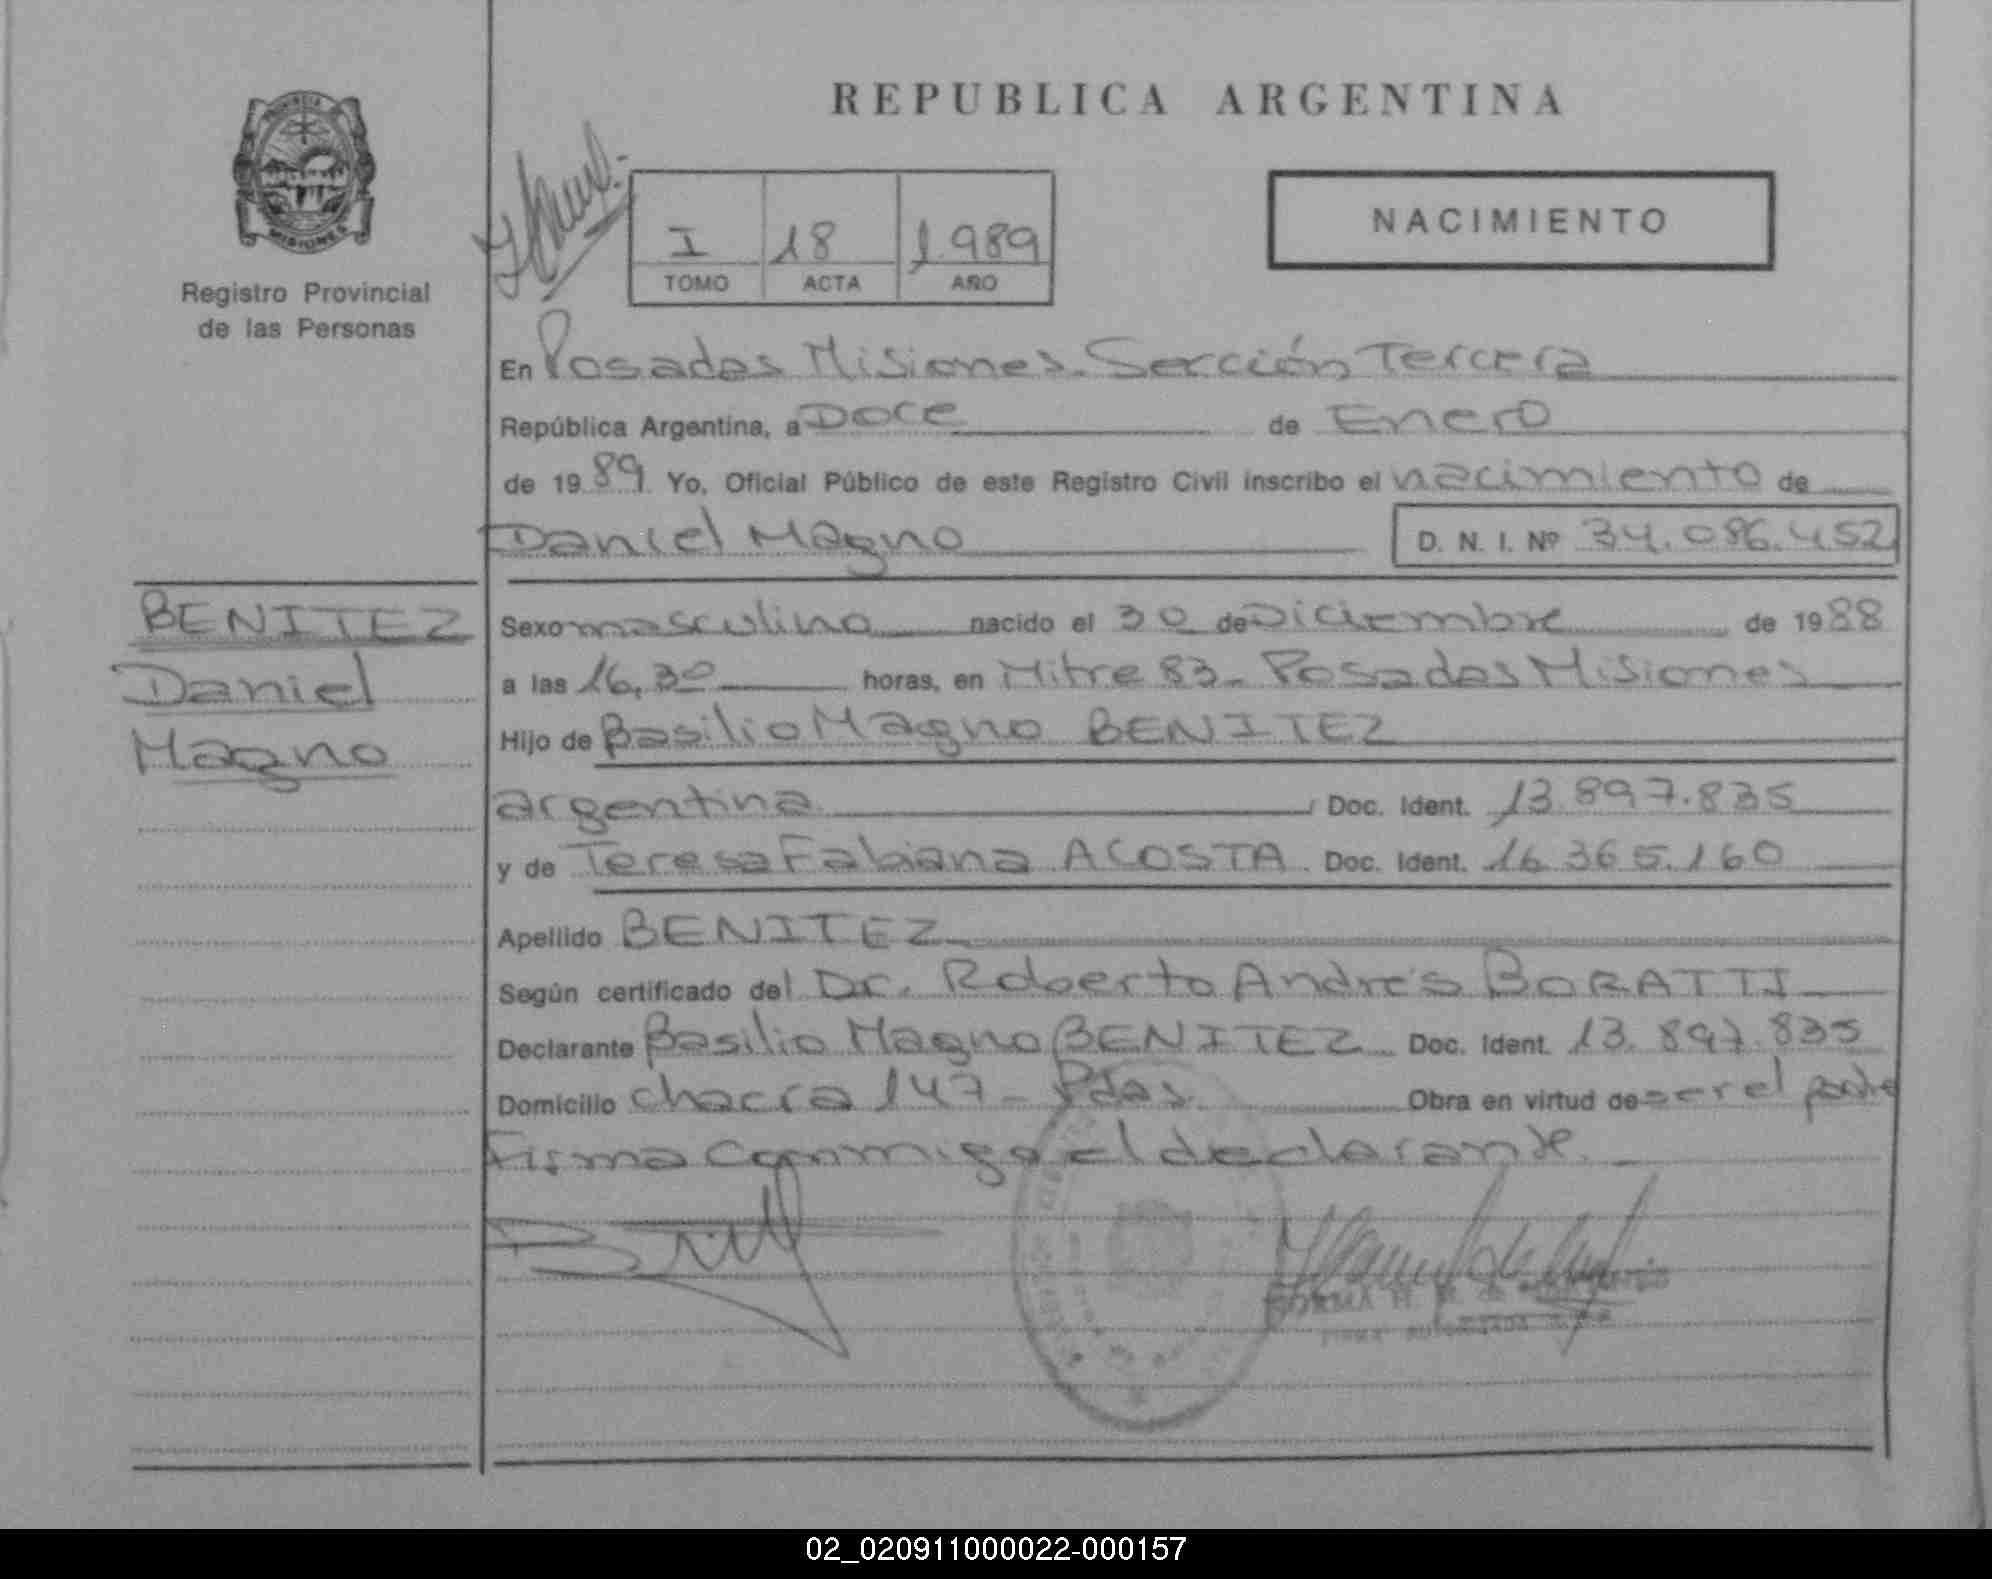 REPUBLICA ARGENTINA
PROVINCIA
MISIONES
Registro Provincial
de las Personas
I 18 1.989
TOMO ACTA AÑO
NACIMIENTO
En Posadas Misiones. Sección Tercera
República Argentina, a Doce de Enero
de 19 89 Yo, Oficial Público de este Registro Civil inscribo el nacimiento de
Daniel Magno D. N. I. Nº 34.086.452
BENITEZ
Daniel
Magno
Sexo masculino nacido el 30 de Diciembre de 19 88
a las 16,30 horas, en Mitre 83 - Posadas Misiones
Hijo de Basilio Magno BENITEZ
argentina Doc. Ident. 13.897.835
y de Teresa Fabiana ACOSTA Doc. Ident. 16.365.160
Apellido BENITEZ
Según certificado del Dr. Roberto Andrés BORATTI
Declarante Basilio Magno BENITEZ Doc. Ident. 13.897.835
Domicilio chacra 147 - Pdas. Obra en virtud de ser el padre
Firma conmigo el declarante.
NORMA H. M. de
FIRMA AUTORIZADA
02_020911000022-000157